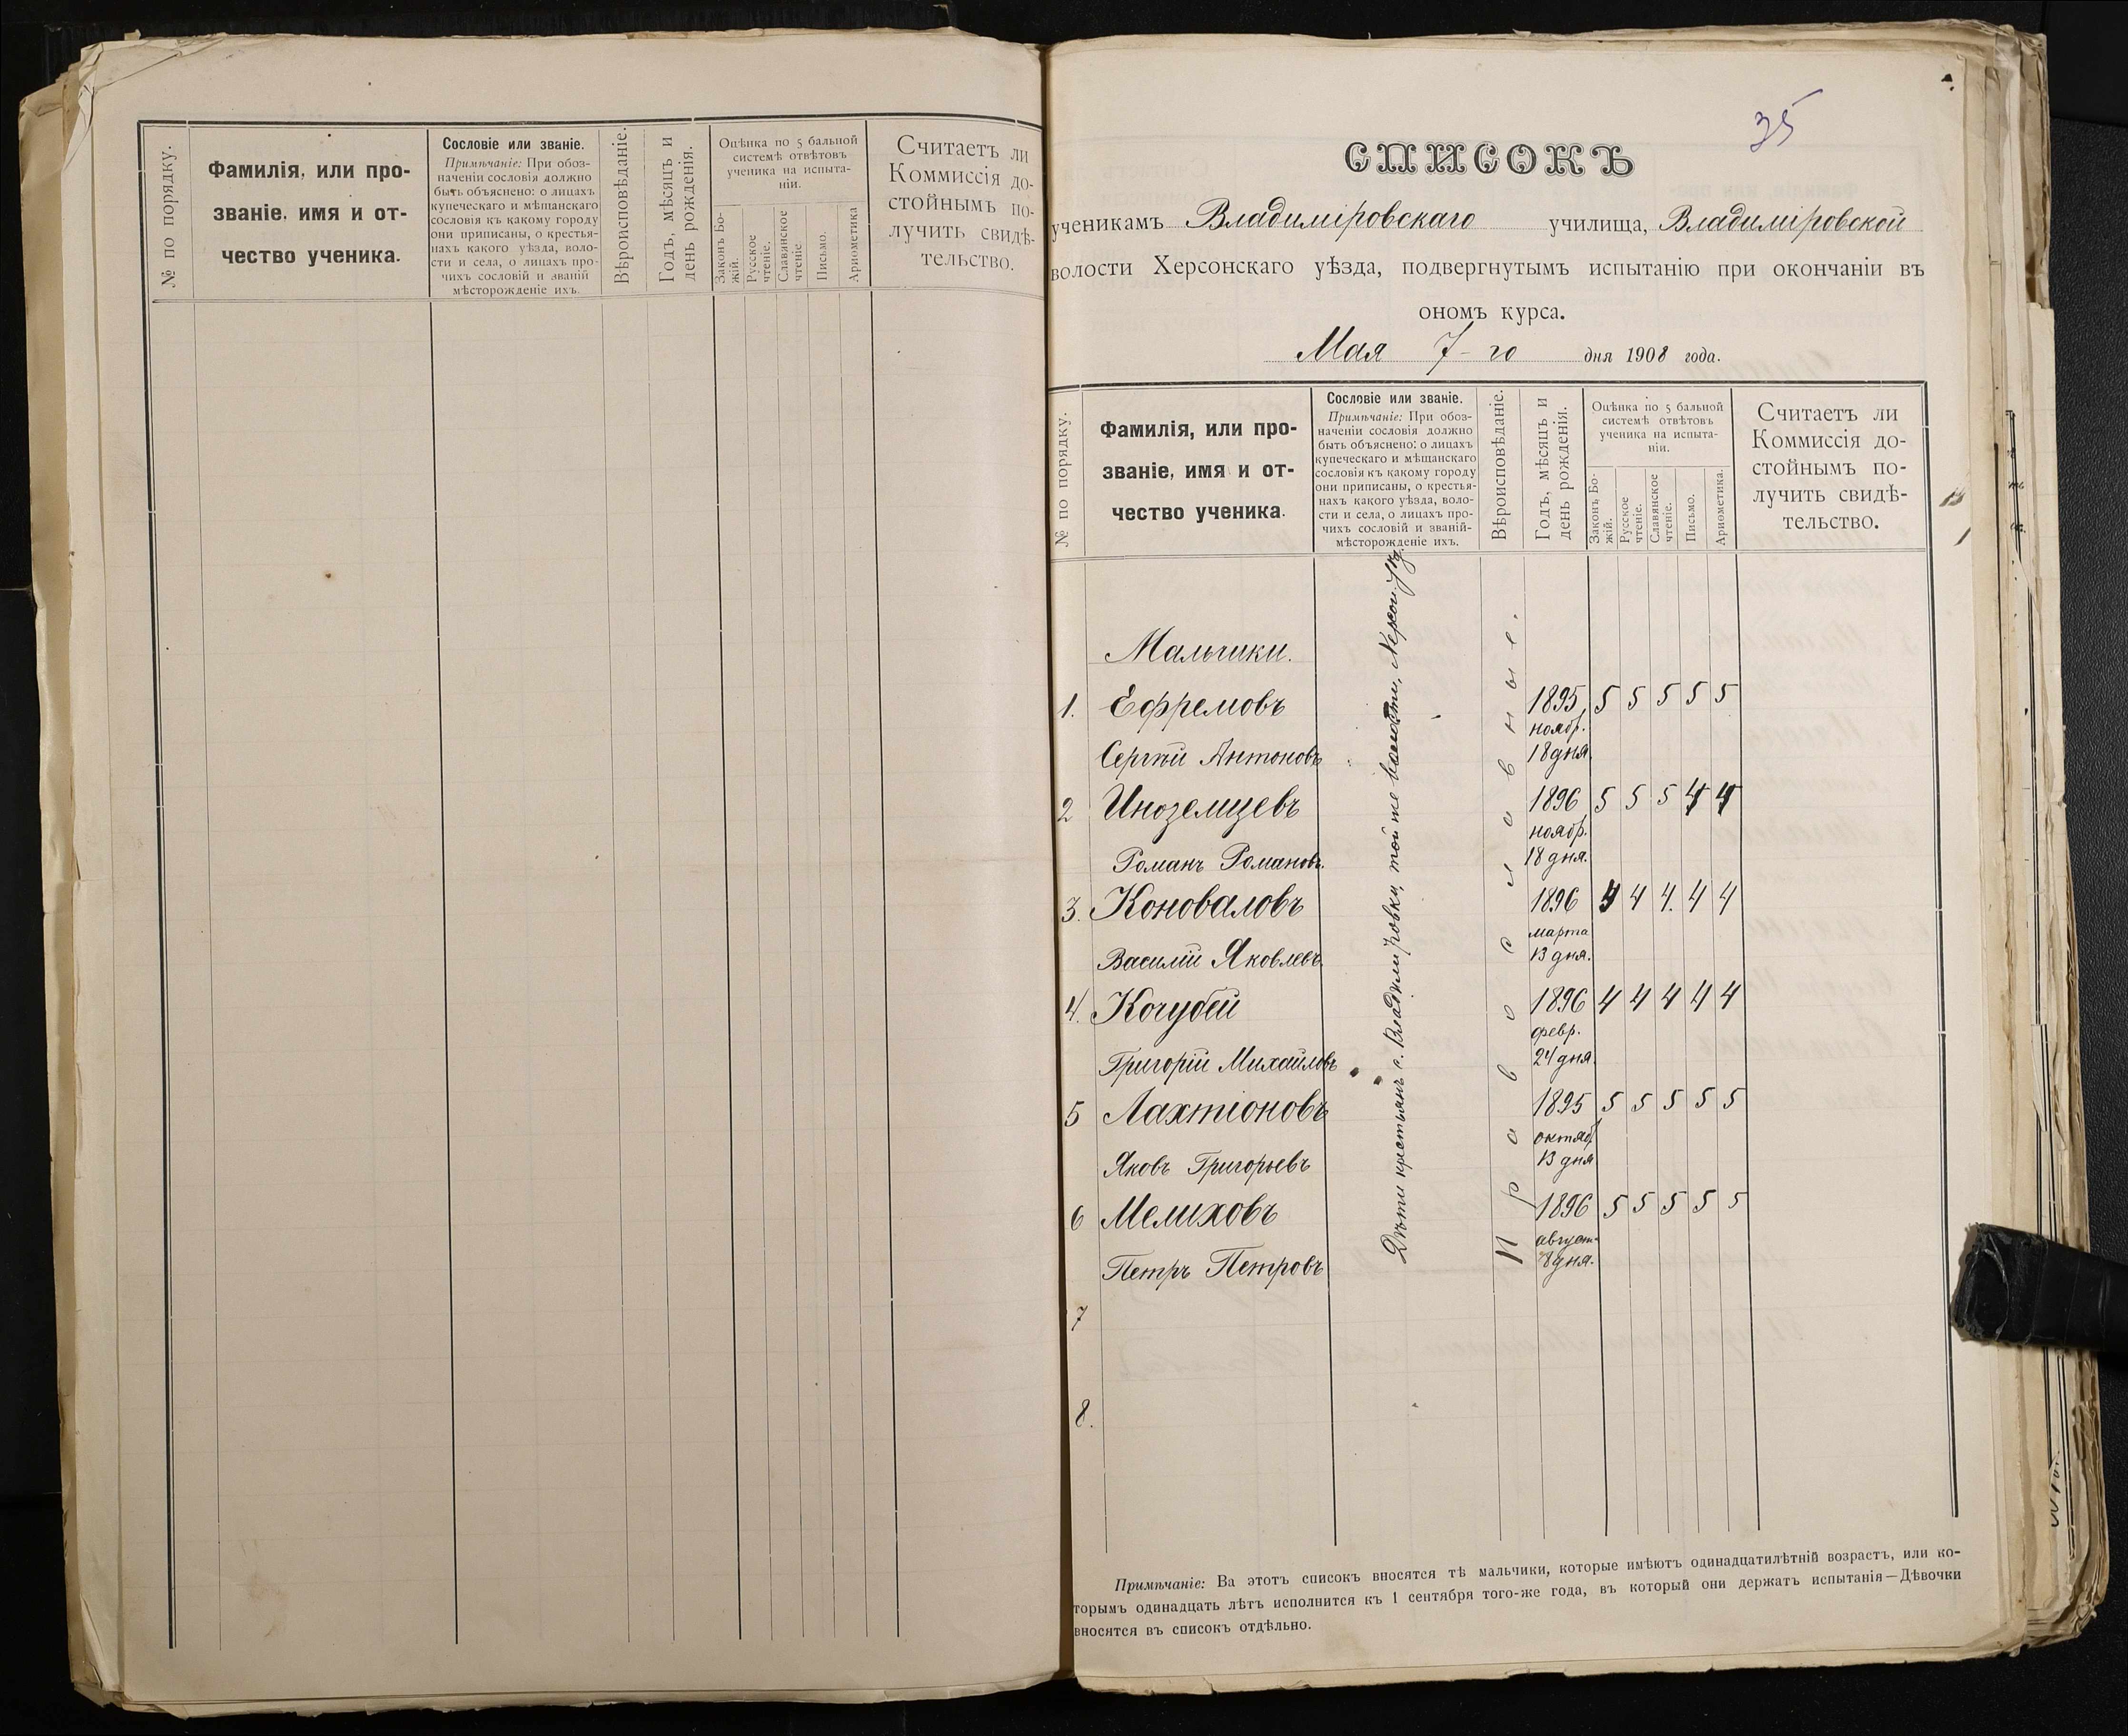 № по порядку.
Фамилія, или про-
званіе, имя и от-
чество ученика.
Сословіе или званіе.
Примѣчаніе: При обоз-
наченіи сословія должно
быть объяснено: о лицахъ
купеческаго и мѣщанскаго
сословія къ какому городу
они приписаны, о крестья-
нахъ какого уѣзда, воло-
сти и села, о лицахъ про-
чихъ сословій и званій
мѣсторожденіе ихъ.
Вѣроисповѣданіе.
Годъ, мѣсяцъ и
день рожденія.
Оцѣнка по 5 бальной
системѣ отвѣтовъ
ученика на испыта-
ніи.
Законъ Бо-
жій.
Русское
чтеніе.
Славянское
чтеніе
Письмо.
Ариѳметика
Считаетъ ли
Коммиссія до-
стойнымъ по-
лучить свидѣ-
тельство.
35
СПИСОКЪ
ученикамъ Владиміровскаго училища, Владиміровской
волости Херсонскаго уѣзда, подвергнутымъ испытанію при окончаніи въ
ономъ курса.
Мая 7-го дня 1908 года.
№ по порядку.
Фамилія, или про-
званіе, имя и от-
чество ученика.
Сословіе или званіе.
Примѣчаніе: При обоз-
наченіи сословія должно
быть объяснено: о лицахъ
купеческаго и мѣщанскаго
сословія къ какому городу
они приписаны, о крестья-
нахъ какого уѣзда, воло-
сти и села, о лицахъ про-
чихъ сословій и званій-
мѣсторожденіе ихъ.
Вѣроисповѣданіе.
Годъ, мѣсяцъ и
день рожденія.
Оцѣнка по 5 бальной
системѣ отвѣтовъ
ученика на испыта-
ніи.
Законъ Бо-
жій.
Русское
чтеніе.
Славянское
чтеніе.
Письмо.
Ариѳметика.
Считаетъ ли
Коммиссія до-
стойнымъ по-
лучить свидѣ-
тельство.
Мальчики.
Дѣти крестьянъ с. Владиміровки, той же волости, Херсон. уѣз.
Православные.
1. Ефремовъ 1895 5 5 5 5 5
нояб.
Сергѣй Антоновъ 18 дня.
2 Иноземцевъ 1896 5 5 5 4 4
ноябр.
Романъ Романовъ. 18 дня.
3. Коноваловъ 1896 4 4 4. 4 4
марта
Василій Яковлевъ. 13 дня.
4. Кочубей 1896 4 4 4 4 4
февр.
Григорій Михайловъ 24 дня.
5 Лахтіоновъ 1895 5 5 5 5 5
октяб.
Яковъ Григорьевъ 13 дня
6 Мелиховъ 1896 5 5 5 5 5
август.
Петръ Петровъ 8 дня.
7
8.
Примѣчаніе: Ва этотъ списокъ вносятся тѣ мальчики, которые имѣютъ одинадцатилѣтній возрастъ, или ко-
торымъ одинадцать лѣтъ исполнится къ 1 сентября того-же года, въ который они держатъ испытанія—Дѣвочки
вносятся въ списокъ отдѣльно.